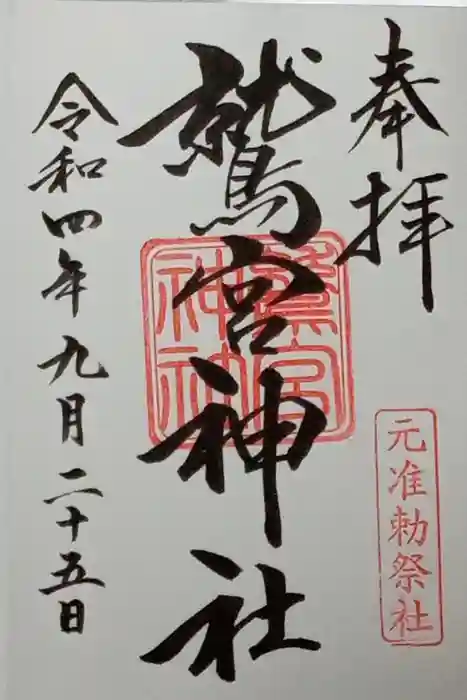 奉拝
元准勅祭社
鷲宮神社
令和四年九月二十五日